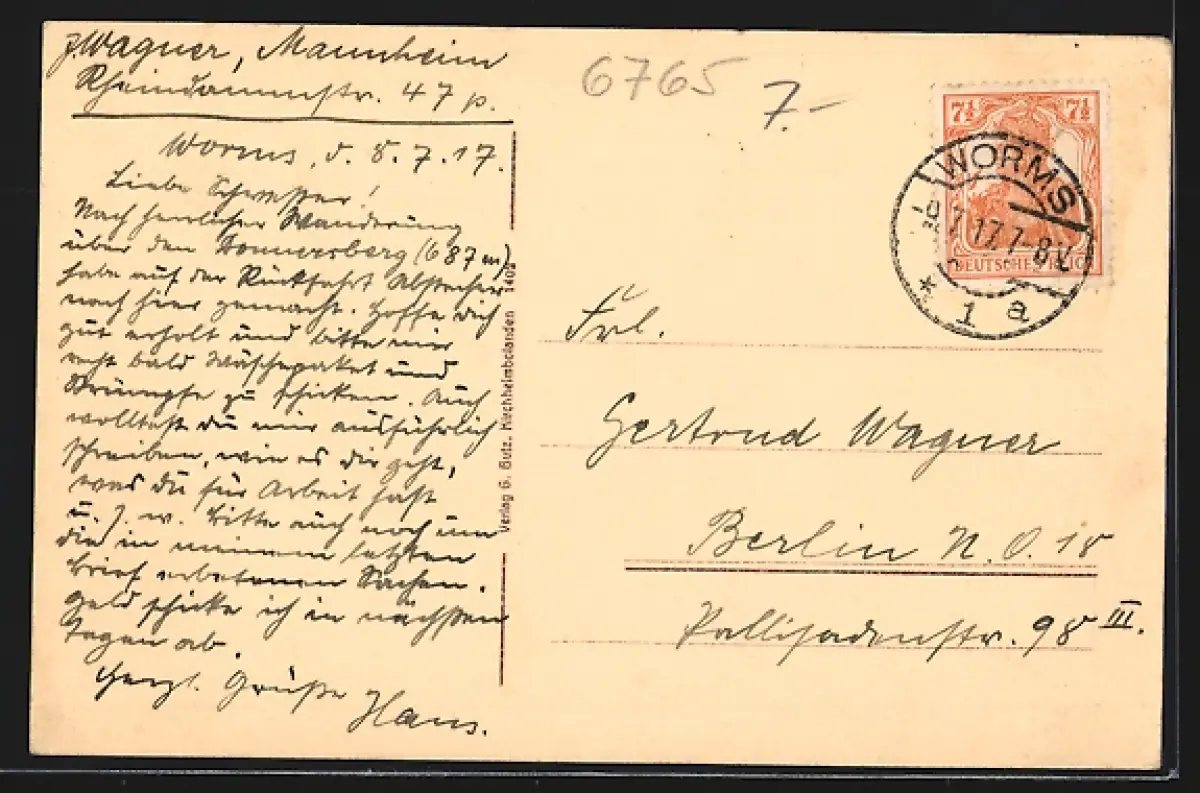 Wagner, Mannheim
Rheindammstr. 47 p.
Worms, d. 8.7.17.
Liebe Schwester!
Nach herrlicher Wanderung
über den Donnersberg (687 m)
habe auf der Rückfahrt Abstecher
nach hier gemacht. Hoffe dich
gut erholt und bitte mir
recht bald Wäschepaket und
Strümpfe zu schicken. Auch
wolltest du mir ausführlich
schreiben, wie es dir geht,
was du für Arbeit hast
u. s. w. Bitte auch noch um
die in meinem letzten
Brief erbetenen Sachen.
Geld schicke ich in nächsten
Tagen ab.
Herzl. Grüße
Hans.
Verlag G. Butz, Kirchheimbolanden 1409
6765
7.-
7½ 7½
DEUTSCHES REICH
WORMS
7.17.7-8V.
* 1 a
Frl.
Gertrud Wagner
Berlin N.O. 18
Pallisadenstr. 98 III.